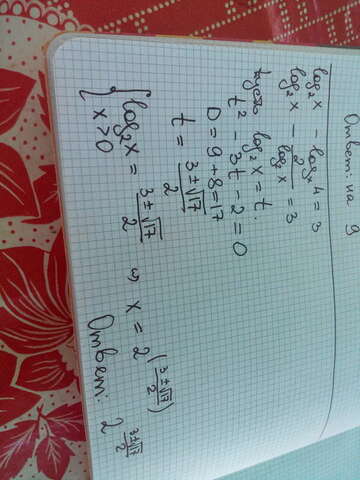 Ответ: на 9
log₂x - logₓ4 = 3
log₂x - 2/log₂x = 3
Пусть log₂x = t.
t² - 3t - 2 = 0
D = 9 + 8 = 17
t = (3 ± √17)/2
{ log₂x = (3 ± √17)/2 ⇔ x = 2^((3 ± √17)/2)
x > 0
Ответ: 2^((3 ± √17)/2)